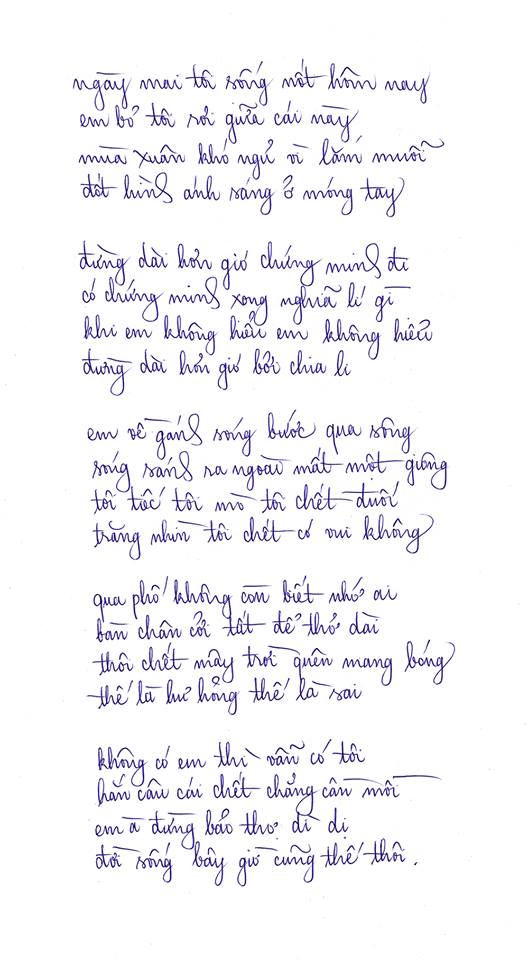 ngày mai tôi sống nốt hôm nay
em bỏ tôi rơi giữa cái này
mùa xuân khó ngủ vì lắm muỗi
đốt hình ánh sáng ở móng tay
đừng dài hơn gió chứng minh đi
có chứng minh xong nghĩa lí gì
khi em không hiểu em không hiểu
đừng dài hơn gió bởi chia li
em về gánh sóng bước qua sông
sóng sánh ra ngoài mất một giông
tôi tiếc tôi mò tôi chết đuối
trăng nhìn tôi chết có vui không
qua phố không còn biết nhớ ai
bàn chân cởi tất để thở dài
thôi chết mây trời quên mang bóng
thế là hư hỏng thế là sai
không có em thì vẫn có tôi
hắn câu cái chết chẳng cần mồi
em ạ đừng bảo thơ dì dị
đời sống bây giờ cũng thế thôi.